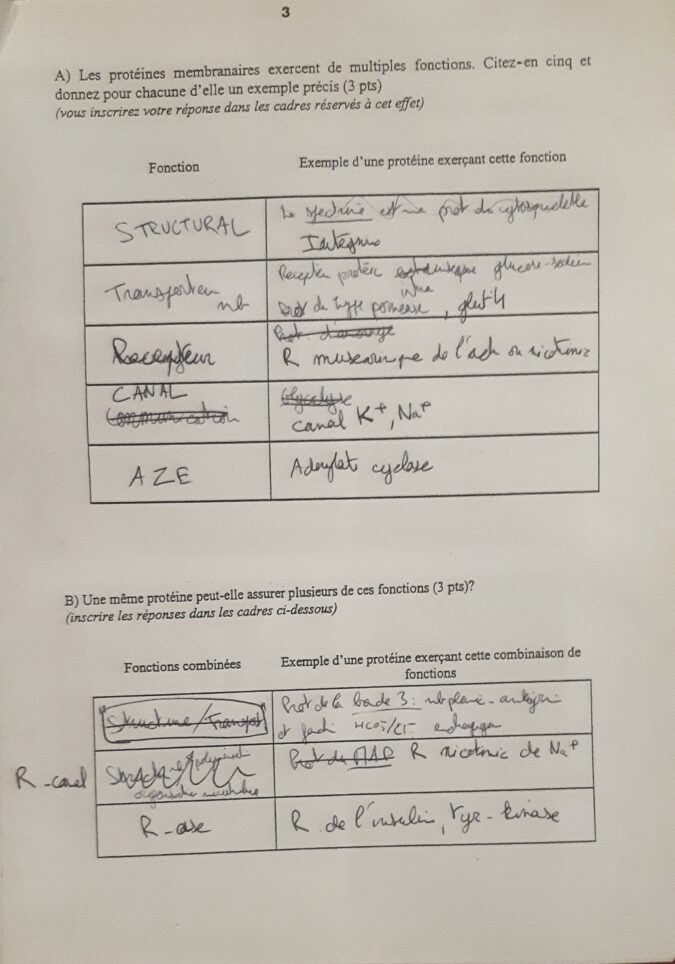 3
A) Les protéines membranaires exercent de multiples fonctions. Citez-en cinq et
donnez pour chacune d'elle un exemple précis (3 pts)
(vous inscrirez votre réponse dans les cadres réservés à cet effet)
Fonction
Exemple d'une protéine exerçant cette fonction
STRUCTURAL
La est une prot du cytosquelette
Transporteur
glucose-sodium
Prot de type , glut 4
Récepteur
R muscarinique de l'ach ou nicotinic
CANAL
Communication
Glycolyse
canal K+, Na+
AZE
Adenylat cyclase
B) Une même protéine peut-elle assurer plusieurs de ces fonctions (3 pts)?
(inscrire les réponses dans les cadres ci-dessous)
Fonctions combinées
Exemple d'une protéine exerçant cette combinaison de
fonctions
Structure/Transport
Prot de la bande 3 :
HCO3-/Cl-
R-canal
R nicotinic de Na+
R-ase
R de l'insulin, tyr-kinase